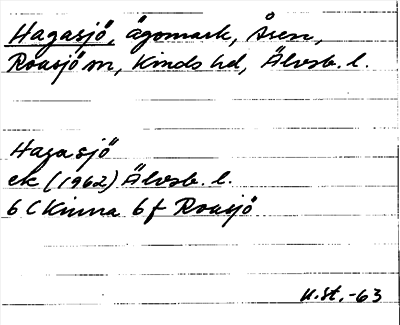 Hagasjö, ägomark, Åsen,
Roasjö sn, Kinds hd, Älvsb. l.
Hagasjö
ek (1962) Älvsb. l.
6 C Kinna 6 f Roasjö
U.St. -63